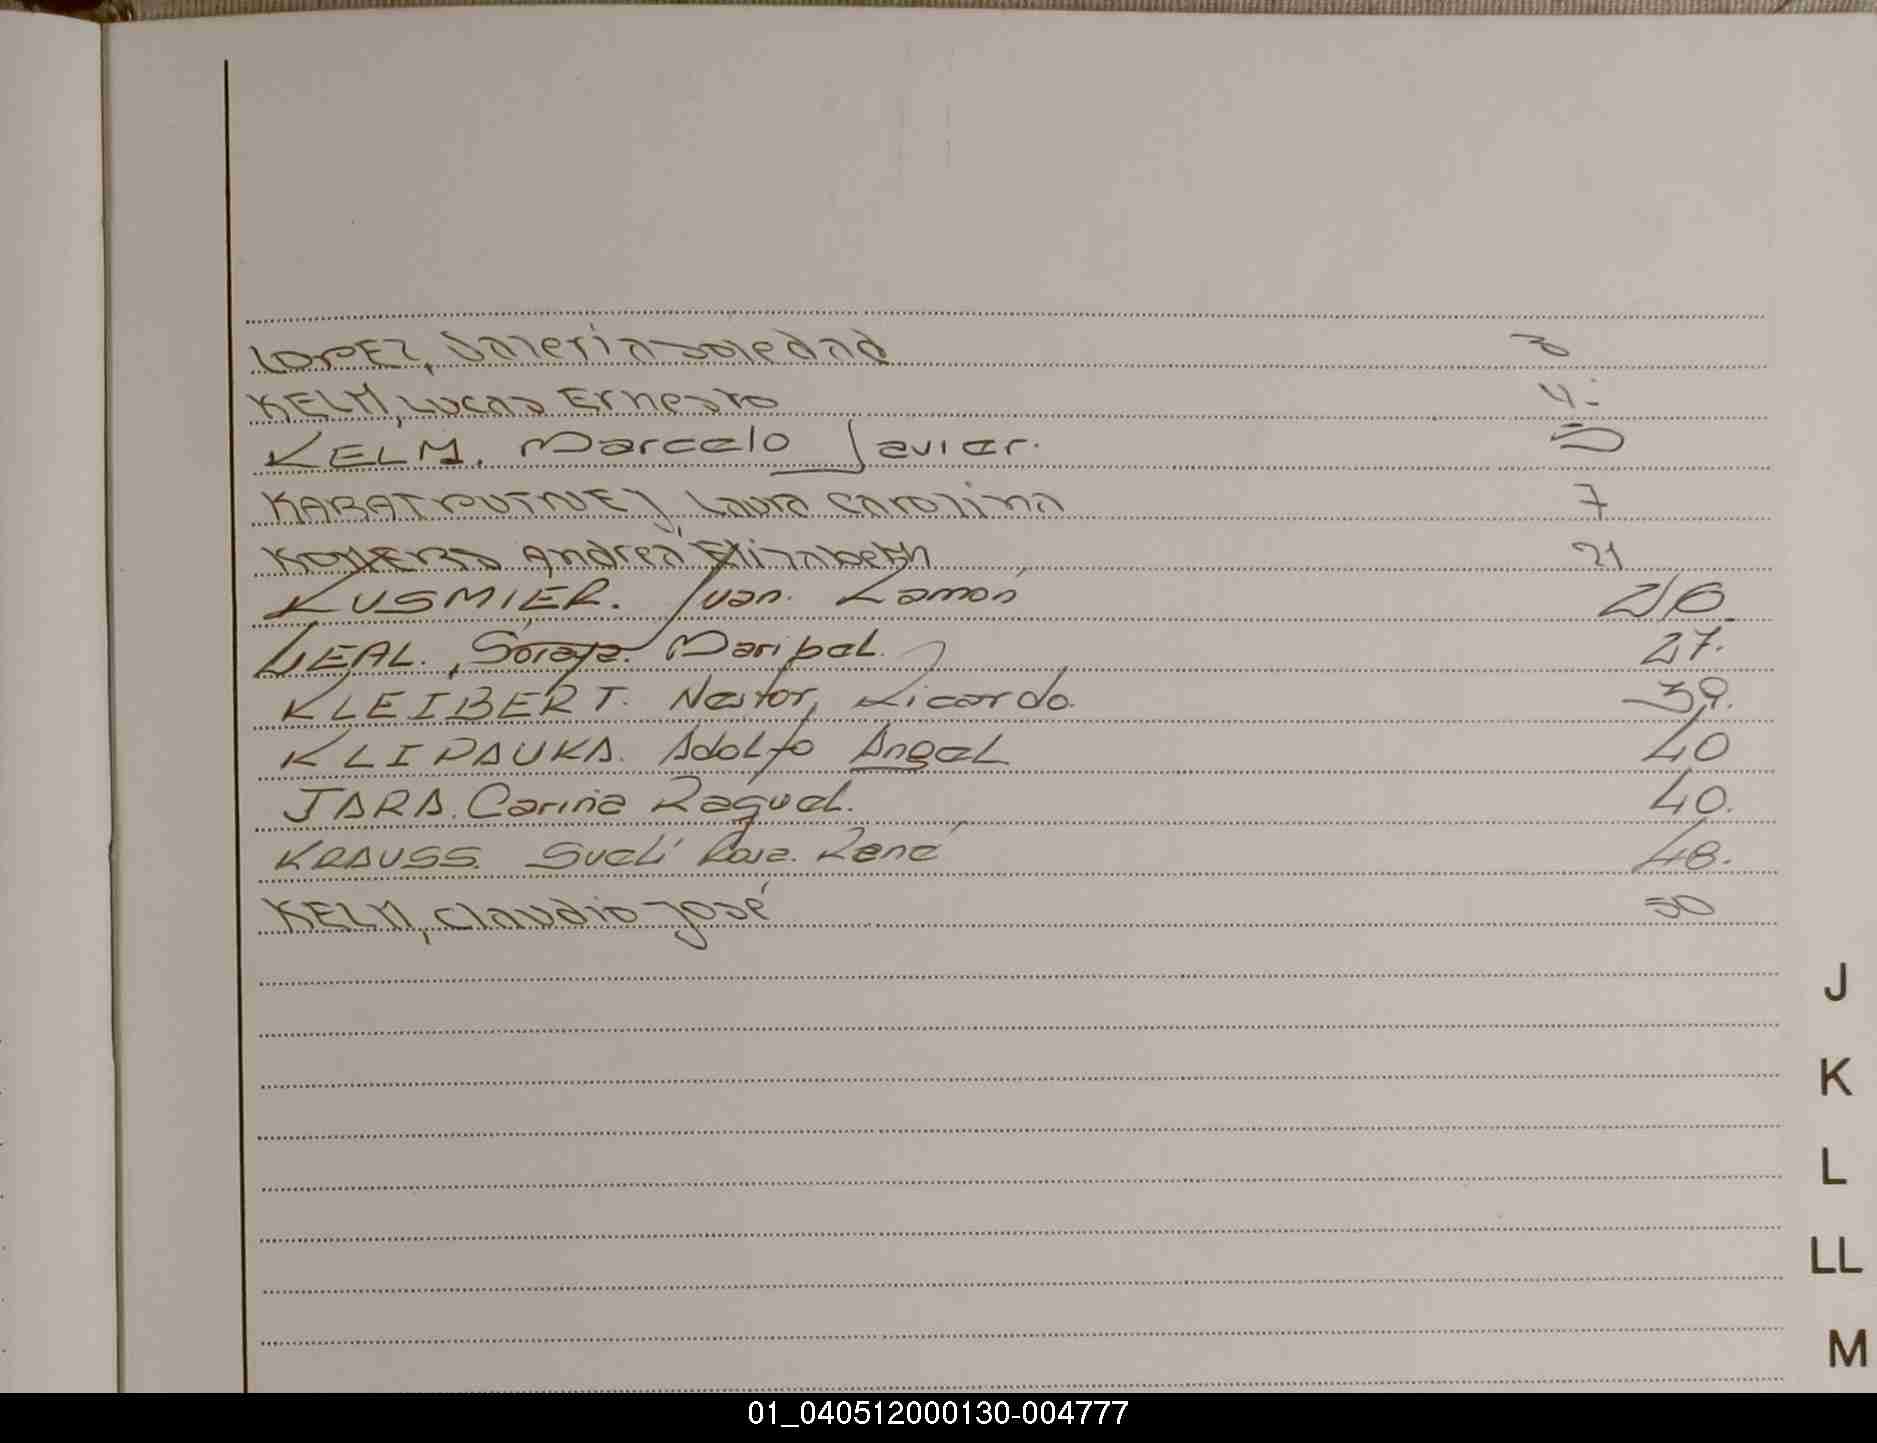 LOPEZ, Valeria Soledad 3
KELM, Lucas Ernesto 4.-
KELM. Marcelo Javier. 5
KABATPUTNEJ, Laura Carolina 7
Andrea Elizabeth 21
KUSMIER. Juan. Ramón 26.
LEAL., Soraya. Maribel. 27.
KLEIBERT. Nestor, Ricardo. 39.
KLIPAUKA. Adolfo Angel 40
JARA. Carina Raquel. 40.
KRAUSS. Suelí Rosa. René 48.
KELM, Claudio José 50
J
K
L
LL
M
01_040512000130-004777